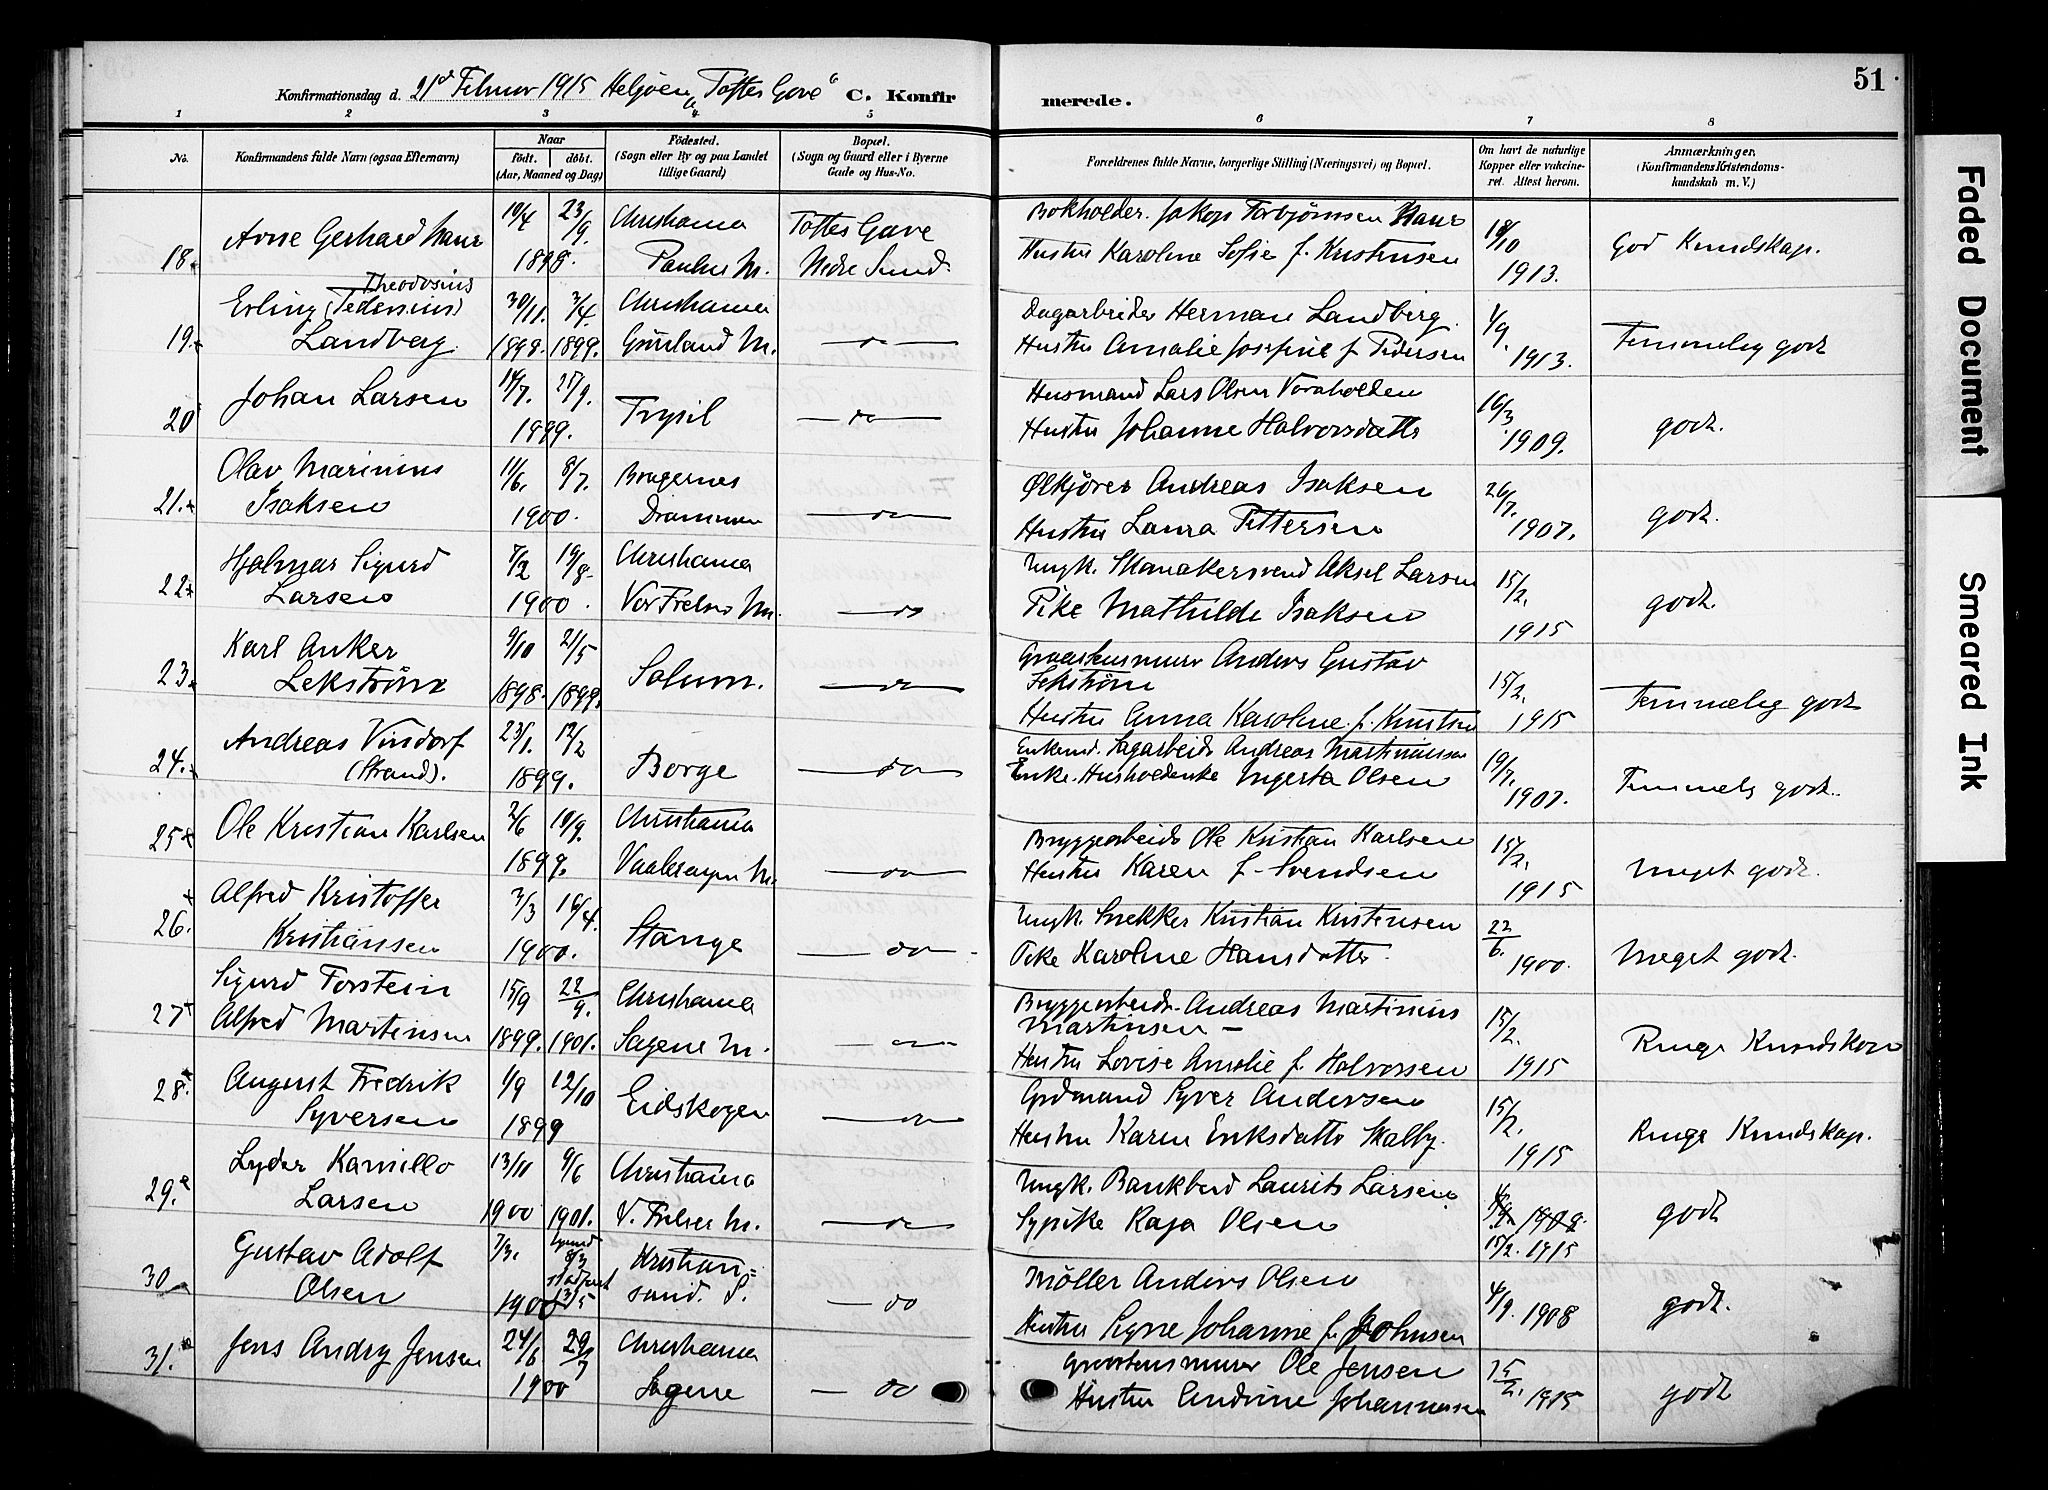 Konfirmationsdag d. 21de Februar 1915 Helgöen "Toftes Gave" C. Konfirmerede. 51
1 2 3 4 5 6 7 8
No. Konfirmandens fulde Navn (ogsaa Efternavn) Naar födt. döbt. (Aar, Maaned og Dag) Födested. (Sogn eller By og paa Landet tillige Gaard) Bopæl. (Sogn og Gaard eller i Byerne Gade og Hus-No. Forældrenes fulde Navne, borgerlige Stilling (Næringsvei) og Bopæl. Om havt de naturlige Kopper eller vakcineret. Attest herom. Anmærkninger. (Konfirmandens Kristendomskundskab m. V.)
18. Arne Gerhard 10/4 23/9. Christiania Toftes Gave Bokholder Jakop Torbjørnsen 18/10 God Kundskap.
1898. Paulus M. Nedre Sund. Hustru Karoline Sofie f. Kristensen 1913.
Theodosius
19. Erling (Pedersius) 30/11. 3/4. Christiania Dagarbeider Herman Landberg. 4/9. Temmelig godt
Landberg. 1898. 1899. Grønland M. — do — Hustru Amalie Josefine f. Pedersen 1913.
20 Johan Larsen 14/7. 27/9. Trysil — do — Husmand Lars Olsen 16/3. godt.
1899. Hustru Johanne Halvorsdatter 1909.
21. Olav Marinius 11/6. 8/7. Bragernes Ølkjører Andreas Isaksen 26/7. godt.
Isaksen 1900. Drammen — do — Hustru Laura Pettersen 1907.
22 Hjalmar Sigurd 7/2 19/8. Christiania Ungk. Skomakersvend Aksel Larsen 15/2. godt.
Larsen 1900. Vor Frelsers M. — do Pike Mathilde Isaksen 1915
23. Karl Anker 9/10 21/5 Solum. Graastensmurer Anders Gustav
Lekstrøm 1898. 1899. — do — Lekstrøm 15/2. Temmelig godt
Hustru Anna Karoline f. Knutsen 1915
24. Andreas Vindorf 23/1. 12/2 Borge Enkemd. Sagarbeider Andreas Martiniussen 19/7. Temmelig godt.
(Strand). 1899. — do — Enke. Husholderske Ingerta Olsen 1907.
25 Ole Kristian Karlsen 2/6 10/9. Christiania Bryggearbeider Ole Kristian Karlsen 15/2. Meget godt.
1899. Vaalerengen M. — do — Hustru Karen f. Svendsen 1915
26. Alfred Kristoffer 3/3 16/4. Stange Ungk. Snekker Kristian Kristensen 22/6. Meget godt.
Kristiansen 1900. — do — Pike Karoline Hansdatter 1900.
27 Sigurd Torstein 15/9 22/9. Christiania Bryggearbeider Andreas Martinius
Alfred Martinsen 1899. 1901. Sagene M. — do — Martinsen — 15/2. Ringe Kundskap
Hustru Lovise Amalie f. Halvorsen 1915
28. August Fredrik 1/9 12/10 Eidskogen Syver Andersen 15/2. Ringe Kundskap.
Syversen 1899 — do — Hustru Karen Eriksdatter Skalby. 1915
29. Lyder Kamillo 13/11 9/6 Christiania Ungk. Laurits Larsen godt
Larsen 1900 1901. V. Frelser M. — do — Sypike Kaja Olsen 15/2. 1915
30 Gustav Adolf 7/3. 8/3 Kristian= Møller Anders Olsen 4/9. 1908 godt.
Olsen 1900 13/5 sand. S. — do Hustru Signe Johanne f. Johnsen
31. Jens Andry Jensen 24/6 29/7 Christiania Graastensmurer Ole Jensen 15/2. 1915 godt
1900 Sagene — do Hustru Andrine Johannessen
Faded Document
Smeared Ink